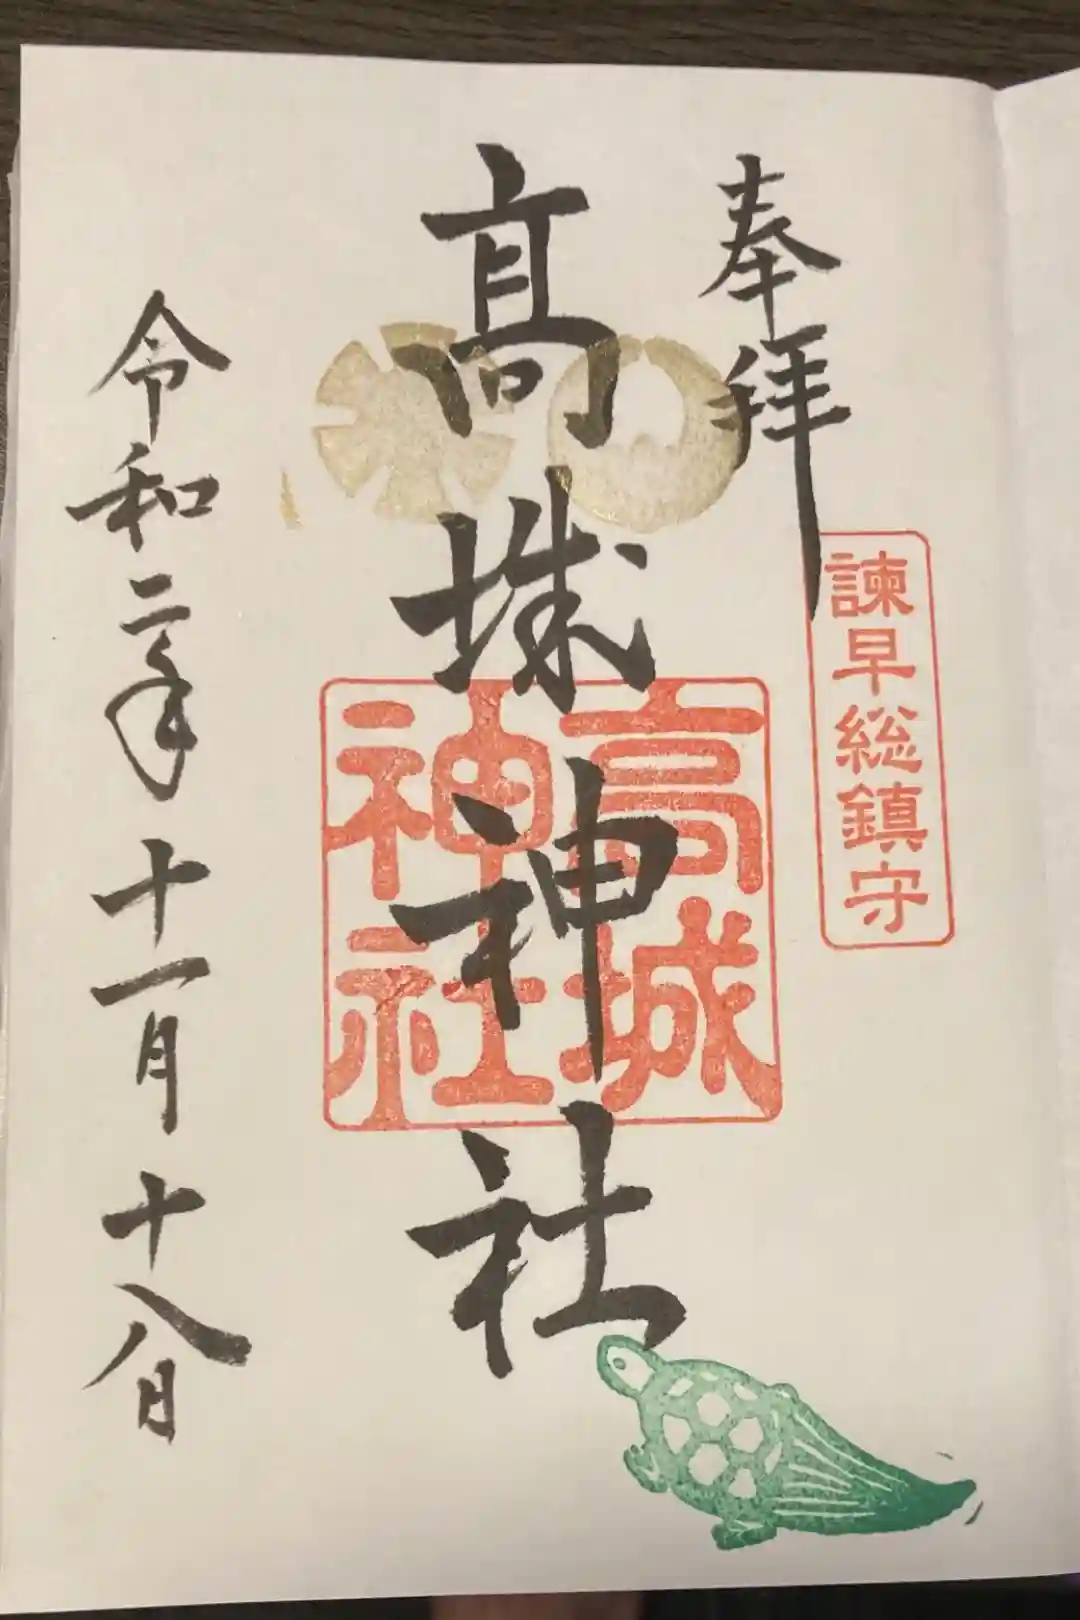 奉拝
諫早総鎮守
髙城神社
高城神社
令和二年十一月十八日